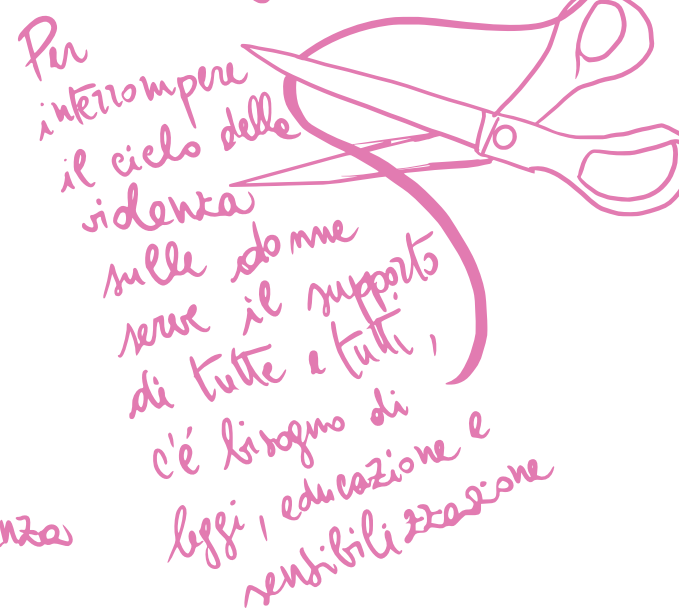 Per
interrompere
il ciclo della
violenza
sulle donne
serve il supporto
di tutte e tutti,
c'é bisogno di
leggi, educazione e
sensibilizzazione
nza